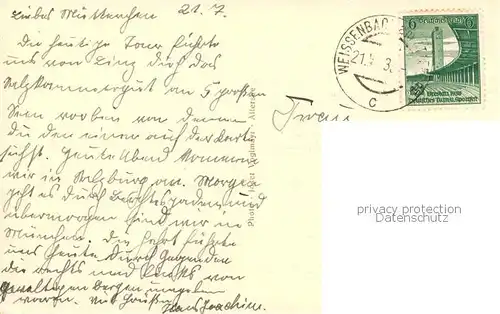 Liebes Muttchen 21. 7.
Die heutige Tour führte
uns von Linz durch das
Salzkammergut an 5 großen
Seen vorbei von denen
Du den einen auf der Karte
siehst. Heute Abend kommen
wir in Salzburg an. Morgen
geht es durch Berchtesgaden und
übermorgen sind wir in
München. Die Fahrt führte
uns heute durch Gegenden
die rechts und links von
gewaltigen Bergen umgeben
waren. Viel Grüße
Hans Joachim.
Attersee
WEISSENBACH
21. 3.
c
6
Breslau 1938
Deutsches Turn- u. Sportfest
privacy protection
Datenschutz